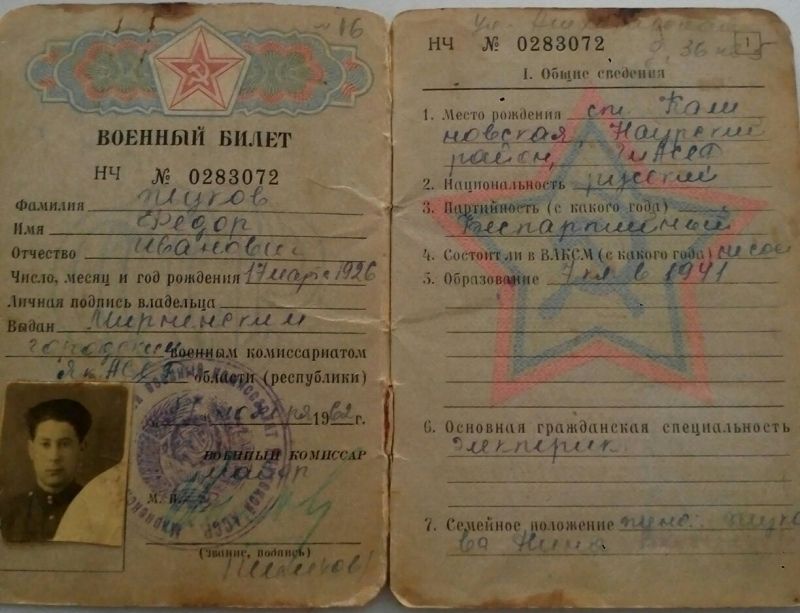 № 16
ВОЕННЫЙ БИЛЕТ
НЧ № 0283072
Фамилия Жуков
Имя Федор
Отчество Иванович
Число, месяц и год рождения 17 марта 1926
Личная подпись владельца
Выдан Мирненским
городским военным комиссариатом
Як АССР области (республики)
ноября 1962 г.
ВОЕННЫЙ КОМИССАР
майор
М. П.
(звание, подпись)
НЧ № 0283072
1
I. Общие сведения
1. Место рождения ст. Кали
новская, Наурский
район, ЧИАССР
2. Национальность русский
3. Партийность (с какого года)
Беспартийный
4. Состоит ли в ВЛКСМ (с какого года) не сост
5. Образование 7 кл в 1941
6. Основная гражданская специальность
Электрик
7. Семейное положение жена: Жуко
ва Нина